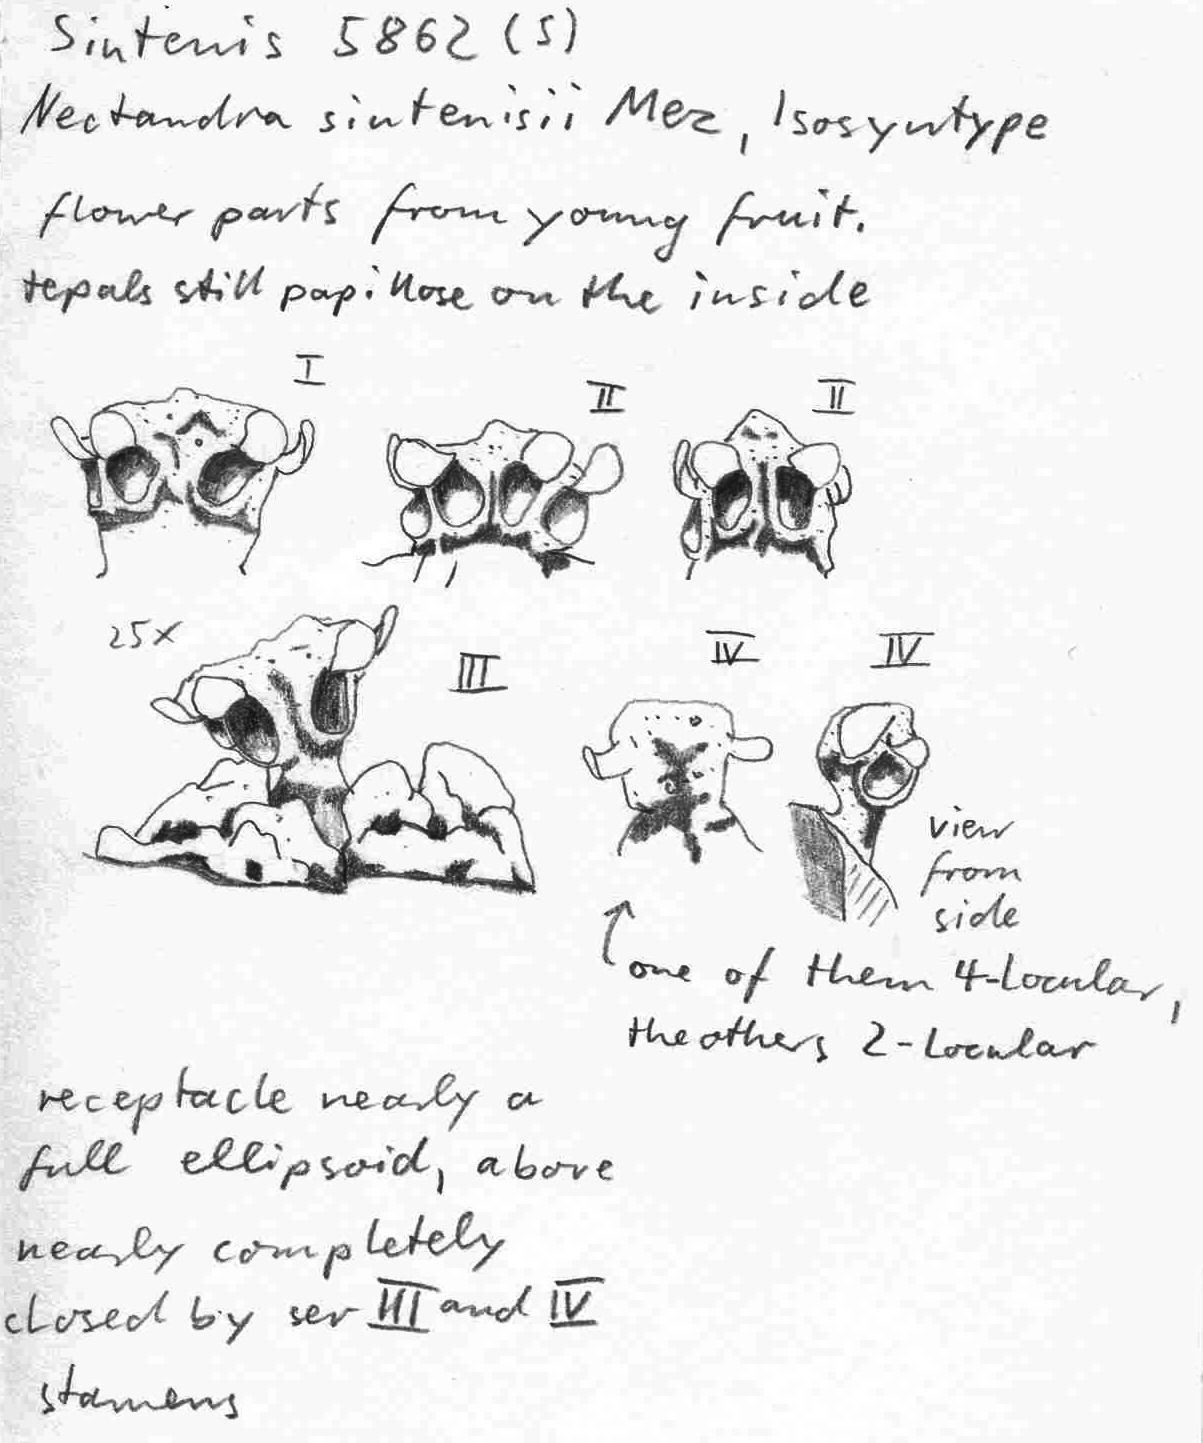 Sintenis 5862 (S)
Nectandra sintenisii Mez, Isosyntype
flower parts from young fruit.
tepals still papillose on the inside
I
II
II
25x
III
IV
IV
view
from
side
one of them 4-locular,
the others 2-locular
receptacle nearly a
full ellipsoid, above
nearly completely
closed by ser III and IV
stamens